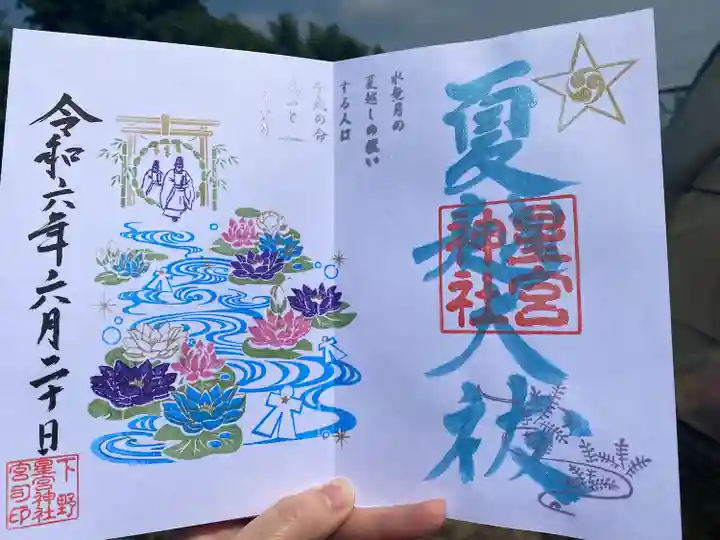 夏越大祓
星宮
神社
水無月の
夏越しの祓い
する人は
千歳の命
令和六年六月二十日
下野
星宮神社
宮司印